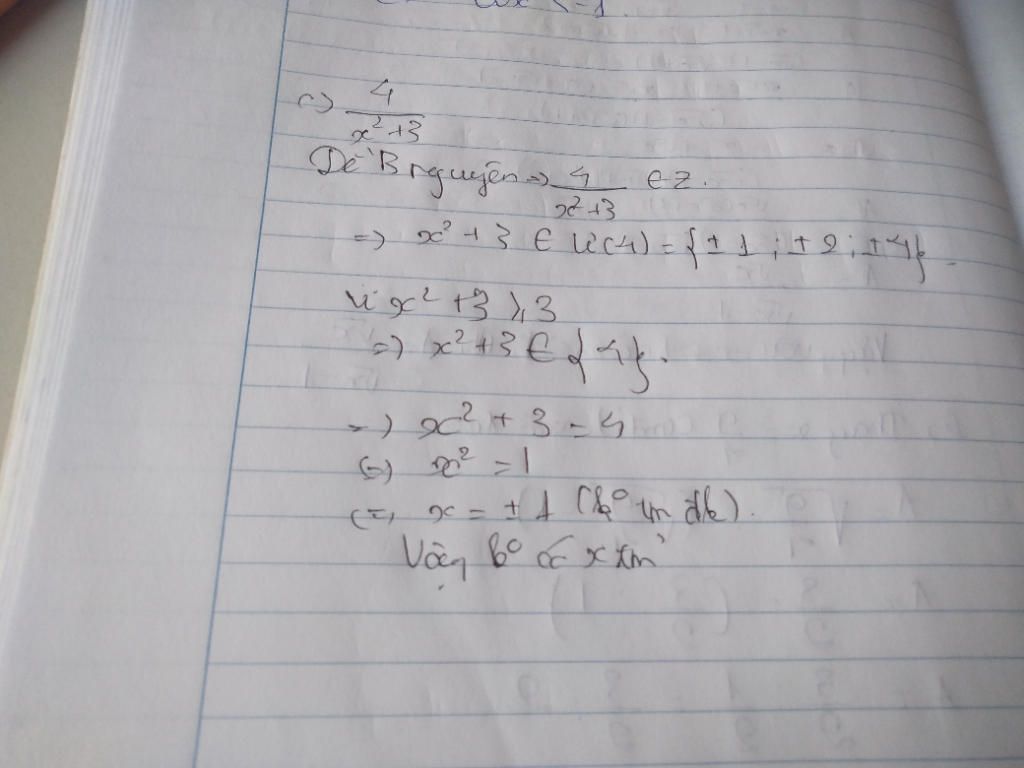 => 4/(x²+3)
Để B nguyên => 4/(x²+3) ∈ Z.
=> x² + 3 ∈ Ư(4) = {±1; ±2; ±4}.
Vì x² + 3 ≥ 3
=> x² + 3 ∈ {4}.
=> x² + 3 = 4
(=) x² = 1
(=) x = ±1 (k° tm đk).
Vậy k° có x tm